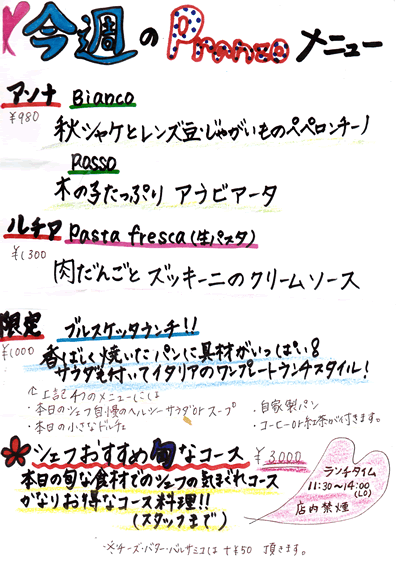 今週の Pranzo メニュー
アンナ Bianco
¥980
秋シャケとレンズ豆・じゃがいものペペロンチーノ
Rosso
木の子たっぷり アラビアータ
ルチア Pasta fresca (生パスタ)
¥1300
肉だんごと ズッキーニのクリームソース
限定 ブルスケッタランチ!!
¥1000
香ばしく焼いたパンに具材がいっぱい。
サラダも付いてイタリアのワンプレートランチスタイル!
上記4つのメニューには
・本日のシェフ自慢のヘルシーサラダorスープ ・自家製パン
・本日の小さなドルチェ ・コーヒーor紅茶が付きます。
シェフおすすめ旬なコース ¥3000
本日の旬な食材でのシェフの気まぐれコース
かなりお得なコース料理!!
(スタッフまで)
ランチタイム
11:30~14:00
(LO)
店内禁煙
※チーズ・バター・バルサミコは +¥50 頂きます。